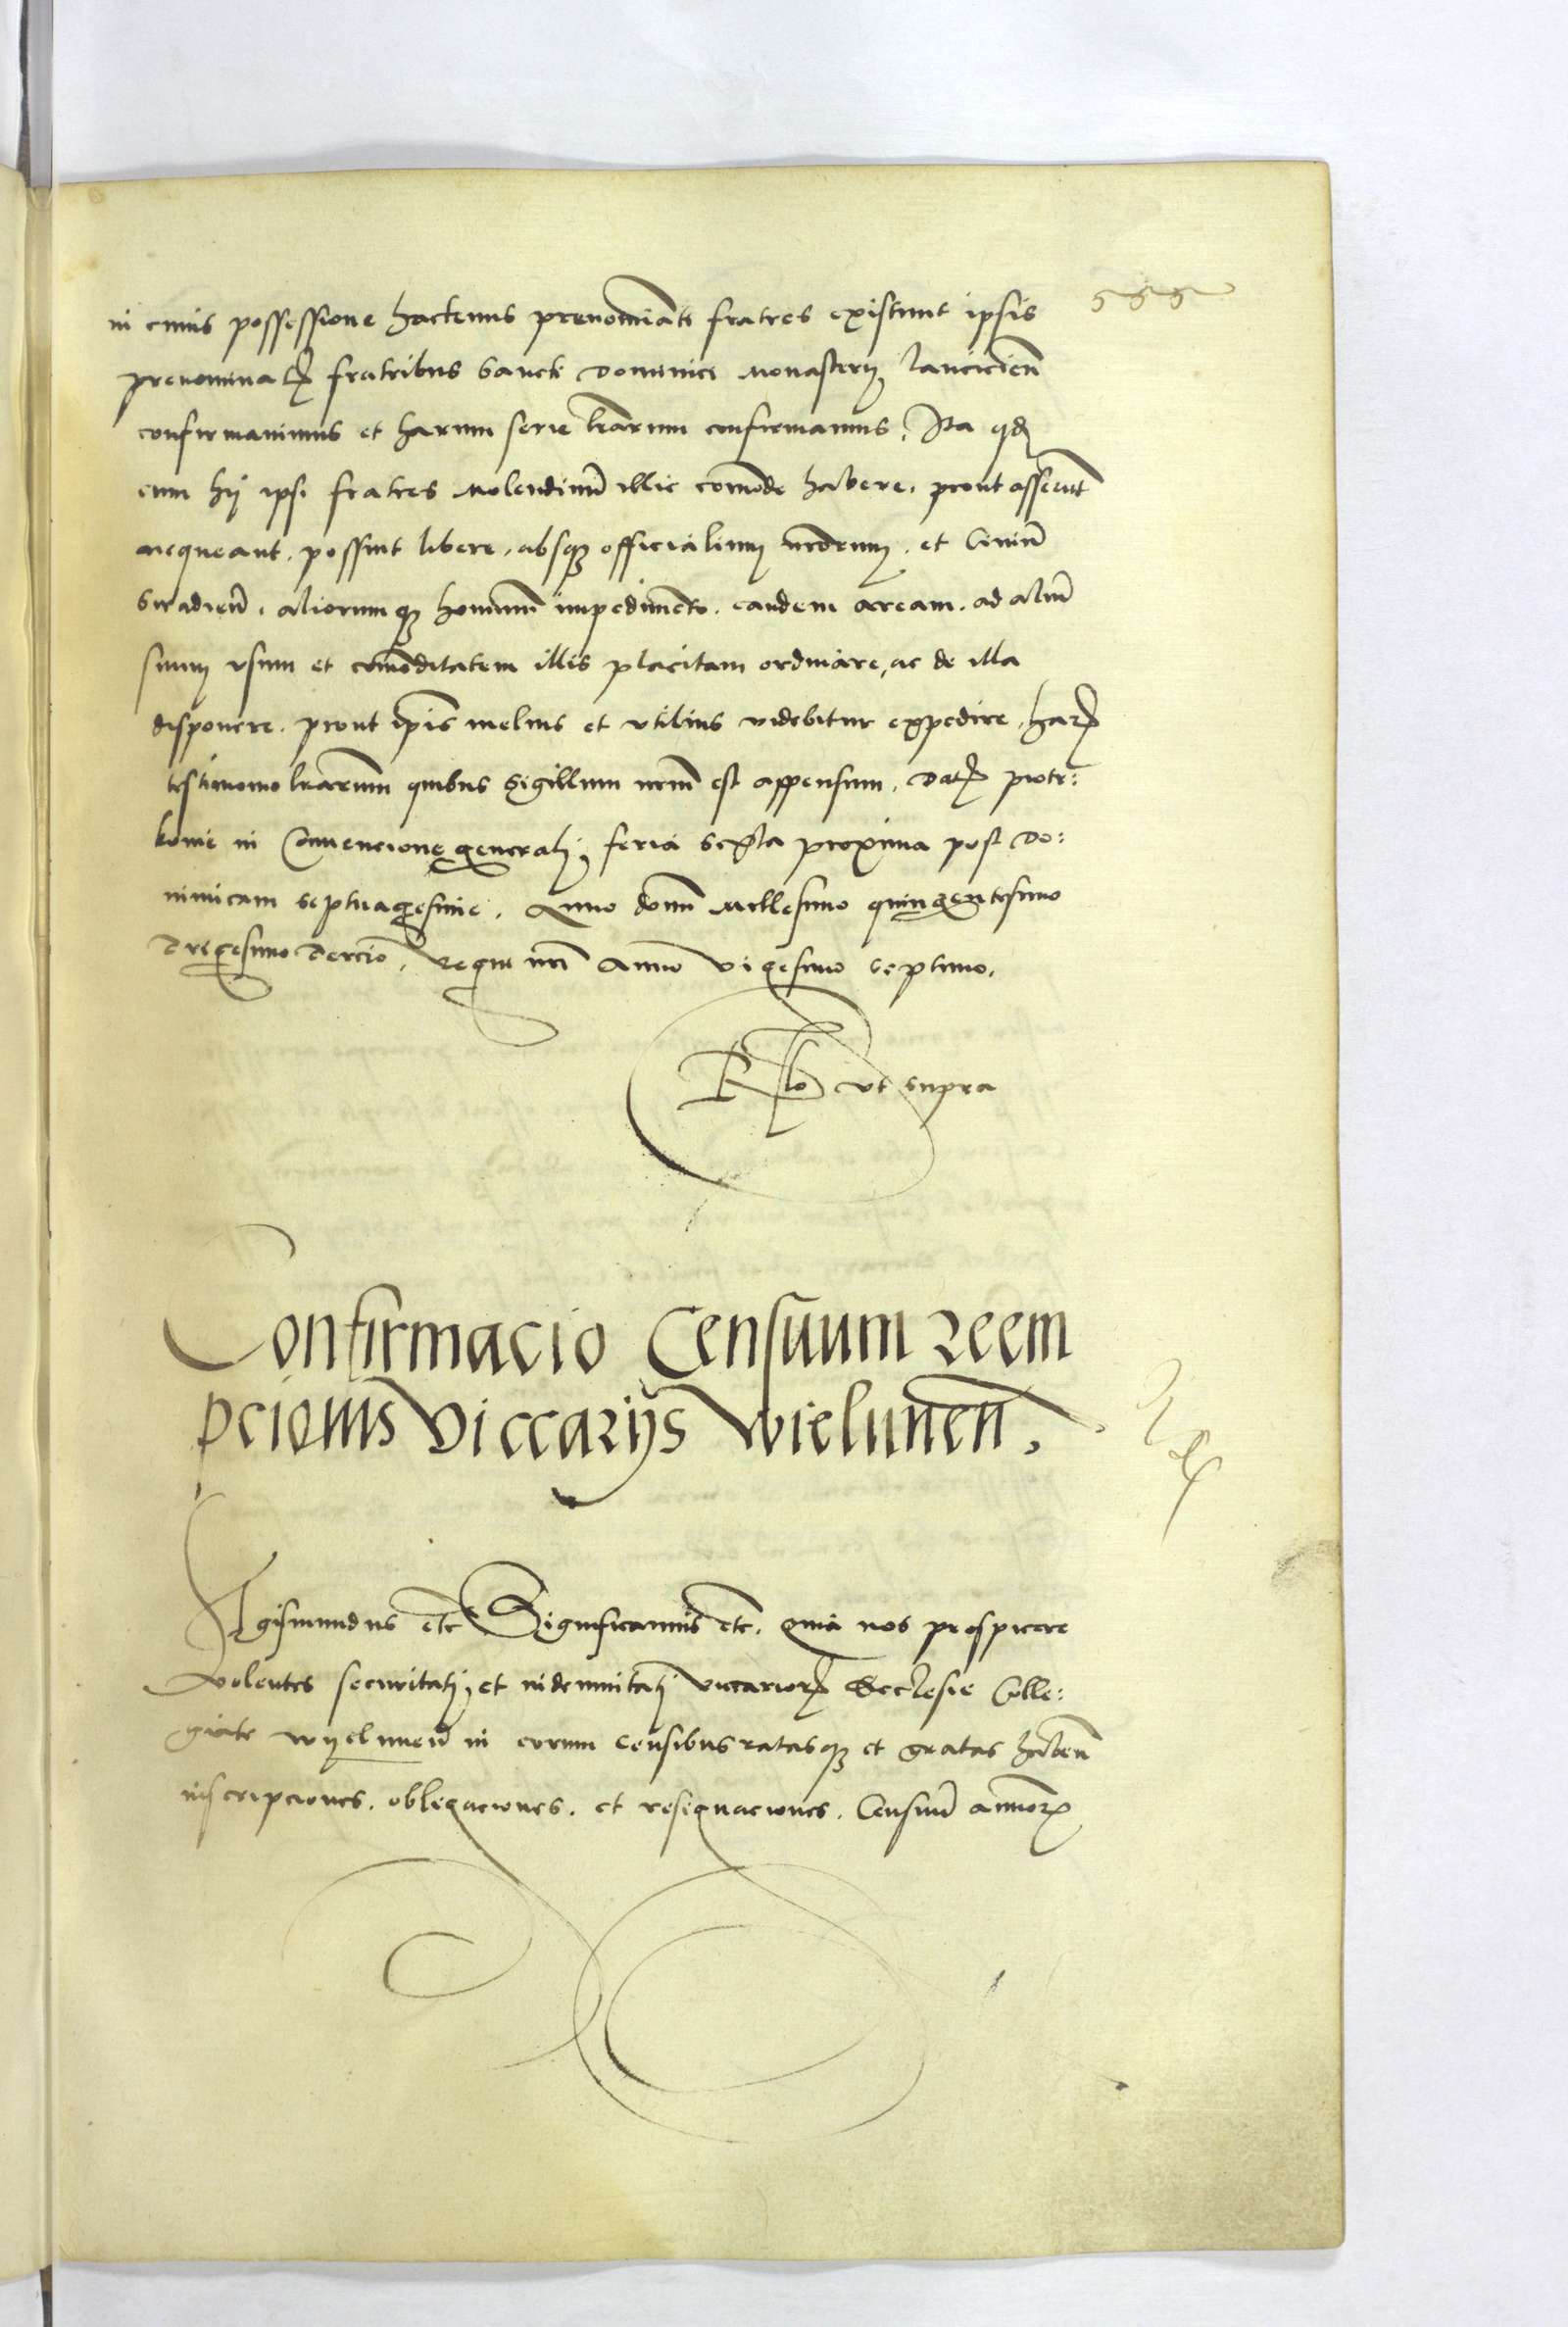 555
in cuius possessione hactenus prenominati fratres existunt ipsis
prenominatꝝ fratribus Sancti Dominici Monasterij Lancicien̄
confirmavimus et harum serie lr̄arum confirmamus. Ita qđ
cum hij ipsi fratres Molendinū illic com̄ode habere, prout asserūt
nequeant, possint libere, absqꝫ officialium nr̄orum, et Civiū
Siradien̄, aliorumqꝫ hominum impedimento, eandem aream, ad aliū
suum usum et com̄oditatem illis placitam ordinare, ac de illa
disponere, prout ip̄is melius et utilius videbitur expedire, harꝝ
testimonio lr̄arum quibus Sigillum nr̄m est appensum, Datꝝ piotr:
kovie in Convencione generali, feria Sexta proxima post Do:
minicam Septuagesime. Anno domini Millesimo quingentesimo
Tricesimo Tercio, Regni nr̄i Anno Vigesimo Septimo.
Rlo ut supra
Confirmacio Censuum reem
pcionis Viccarijs Wielunen̄.
Sigismundus etc Significamus etc. Quia nos prospicere
volentes securitati, et indemnitati viccariorꝝ Ecclesie Colle:
giate Wyelunen̄ in eorum Censibus ratasqꝫ et gratas haben̄
inscripciones, obligaciones, et resignaciones, Censuū annuorꝝ